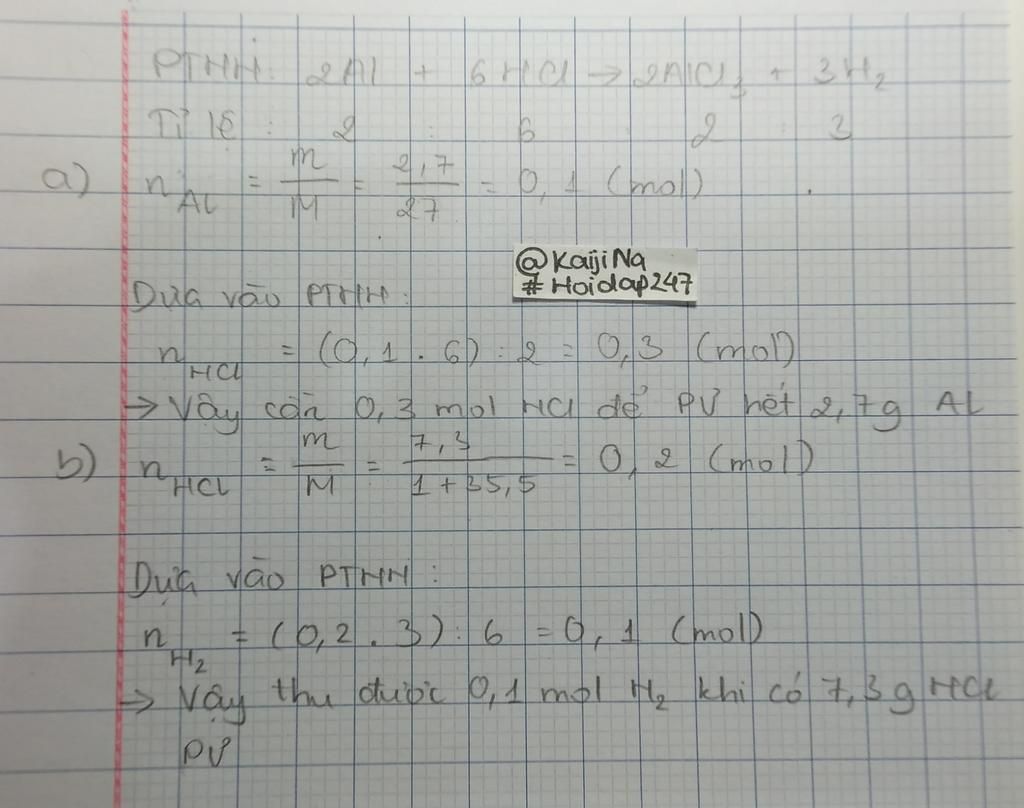 PTHH: 2Al + 6HCl → 2AlCl₃ + 3H₂
Tỉ lệ : 2 : 6 2 : 3
a) n_Al = m/M = 2,7/27 = 0,1 (mol)
@KaijiNa
#Hoidap247
Dựa vào PTHH:
n_HCl = (0,1 . 6) : 2 = 0,3 (mol)
→ Vậy cần 0,3 mol HCl để PƯ hết 2,7g Al
b) n_HCl = m/M = 7,3/1+35,5 = 0,2 (mol)
Dựa vào PTHH:
n_H₂ = (0,2 . 3) : 6 = 0,1 (mol)
→ Vậy thu được 0,1 mol H₂ khi có 7,3g HCl
PƯ